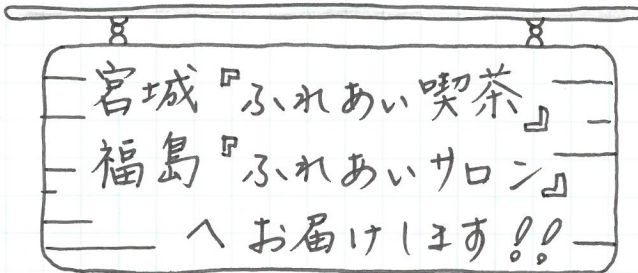 宮城『ふれあい喫茶』
福島『ふれあいサロン』
へお届けします!!